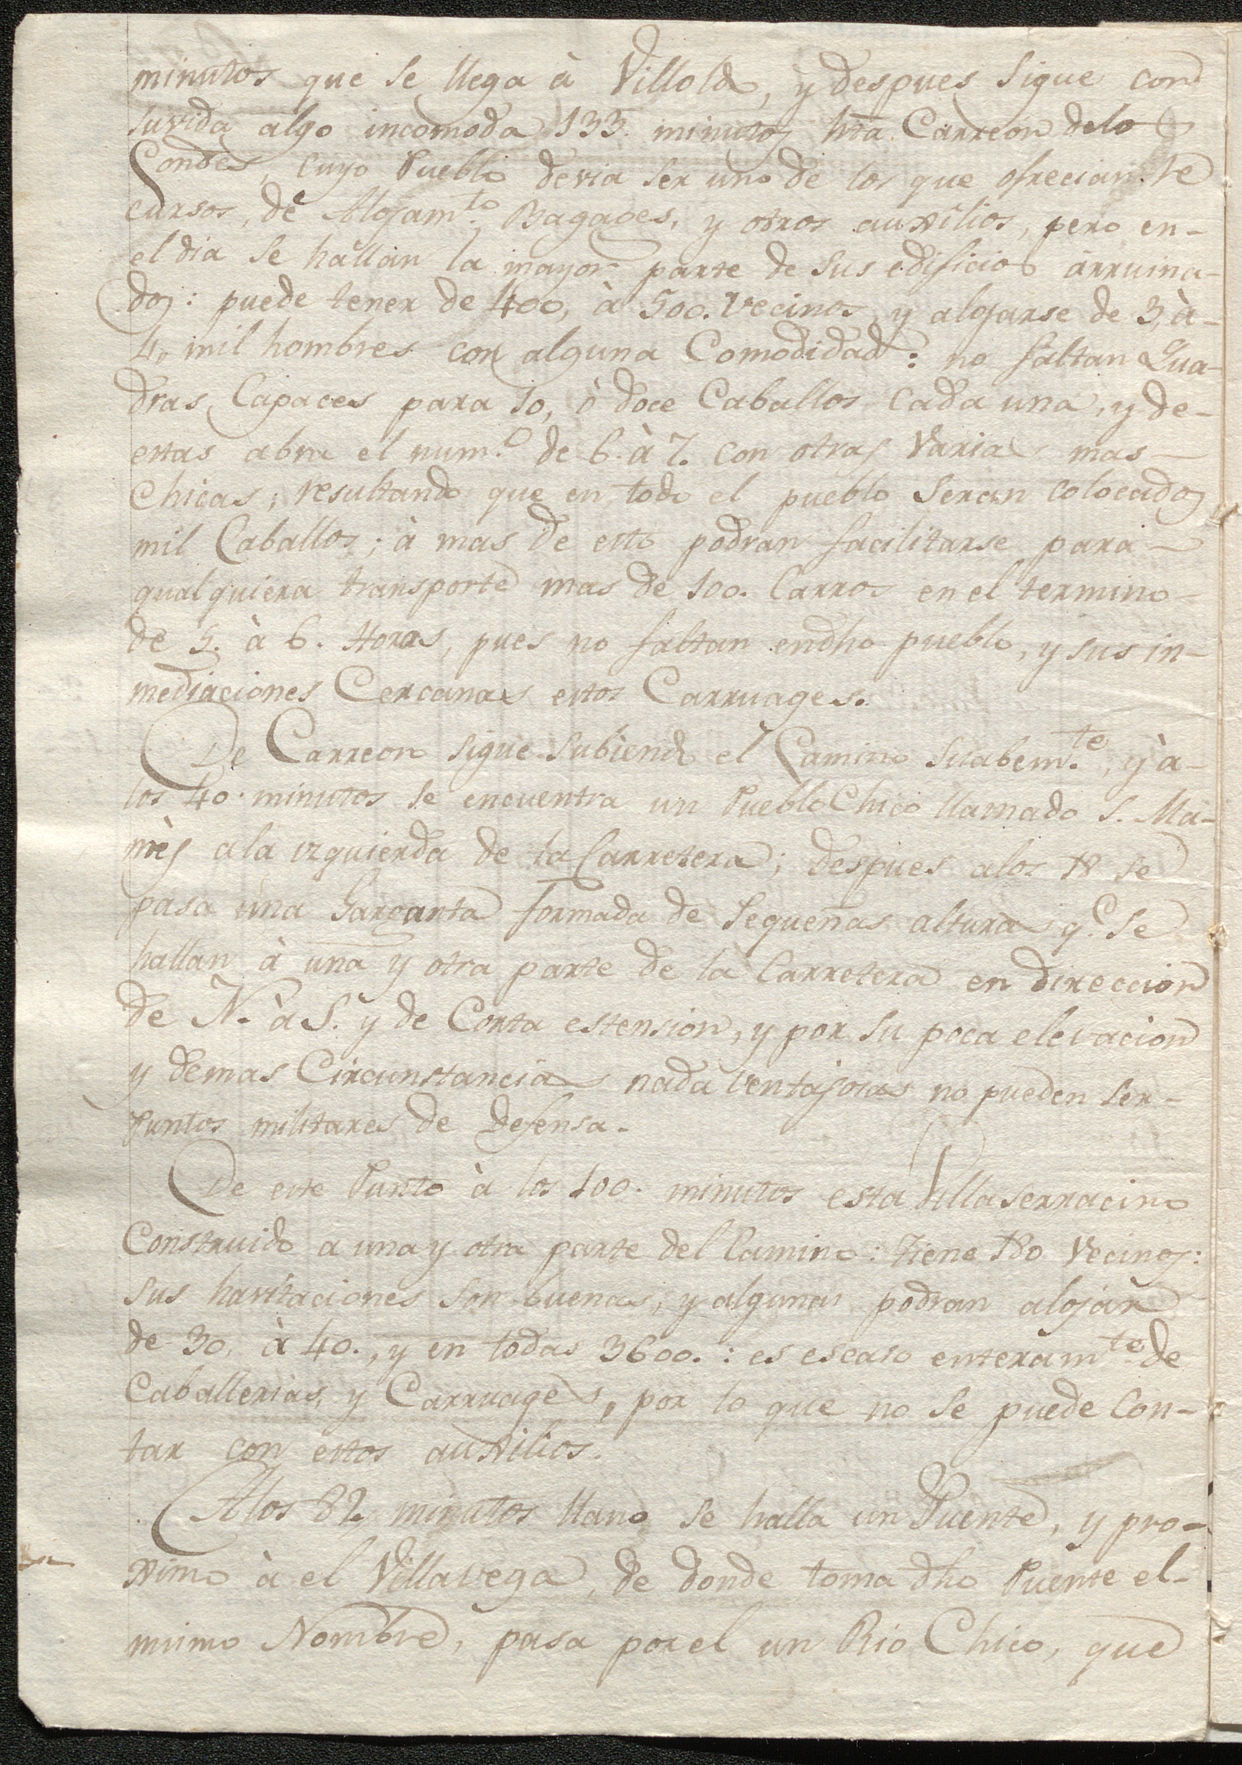 minutos que se llega à Villolda, y despues sigue con
suvida algo incomoda 133. minutos hta. Carreon delos
Condes, cuyo Pueblo devia ser uno de los que ofrecian re
cursos, de Alojam.to Bagages, y otros auxilios, pero en-
el dia se hallan la mayor parte de sus edificios arruina-
dos: puede tener de 400, à 500. vecinos, y alojarse de 3, à-
4, mil hombres con alguna Comodidad: no faltan Qua-
dras Capaces para 10, ò doce Caballos cada una, y de-
estas abra el num.o de 6. à 7. con otras varias mas-
Chicas; resultando que en todo el pueblo seran colocados
mil Caballos; à mas de esto podran facilitarse para-
qualquiera transporte mas de 100. Carros en el termino-
de 5. à 6. Horas, pues no faltan en dho pueblo, y sus in-
mediaciones Cercanas estos Carruages.
De Carreon sigue subiendo el Camino suabem.te, y à-
los 40. minutos se encuentra un Pueblo Chico llamado S. Ma-
mès a la izquierda de la Carretera; despues a los 18 se
pasa una Garganta formada de Pequeñas alturas q.e se
hallan à una y otra parte de la Carretera en direccion
de N. à S. y de Corta estension, y por su poca elevacion
y demas Circunstancias nada ventajosas no pueden ser-
Puntos militares de defensa.
De este Punto à los 100. minutos esta Villaserracino
Construido a una y otra parte del Camino: tiene 180 Vecinos:
sus havitaciones son buenas, y algunas podran alojar
de 30, à 40., y en todas 3600.: es escaso enteram.te de
Caballerias, y Carruages, por lo que no se puede Con-
tar con estos auxilios.
A los 82 minutos llano se halla un Puente, y pro-
ximo à el Villavega, de donde toma dho Puente el-
mismo Nombre, pasa por el un Rio Chico, que